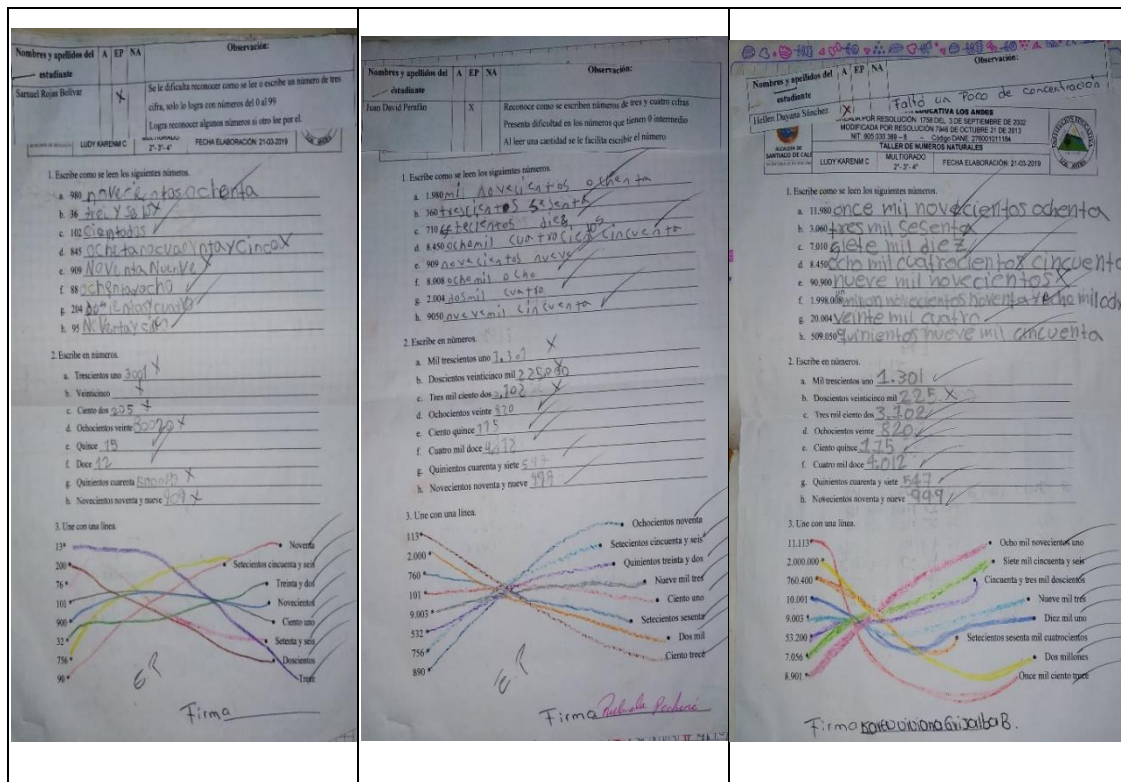 Nombres y apellidos del estudiante
A EP NA
Observación:
Samuel Rojas Bolívar
X
Se le dificulta reconocer como se lee o escribe un número de tres
cifra, solo lo logra con números del 0 al 99
Logra reconocer algunos números si otro lee por el.
LUDY KAREN M C
MULTIGRADO
2°- 3°-4°
FECHA ELABORACIÓN 21-03-2019
1. Escribe como se leen los siguientes números.
a. 980
b. 36
c. 102
d. 845
e. 909
f. 88 ochentayocho
g. 204
h. 95
2. Escribe en números.
a. Trescientos uno 3001 X
b. Veinticinco X
c. Ciento dos 205 X
d. Ochocientos veinte
e. Quince 15
f. Doce 12
g. Quinientos cuarenta
h. Novecientos noventa y nueve
3. Une con una línea.
13
200
76
101
900
32
756
90
Noventa
Setecientos cincuenta y seis
Treinta y dos
Novecientos
Ciento uno
Setenta y seis
Doscientos
Trece
Firma
Nombres y apellidos del estudiante
A EP NA
Observación:
Juan David Perafán
X
Reconoce como se escriben números de tres y cuatro cifras
Presenta dificultad en los números que tienen 0 intermedio
Al leer una cantidad se le facilita escribir el número
1. Escribe como se leen los siguientes números.
a. 1.980 mil novecientos ochenta
b. 360 trescientos sesenta
c. 710
d. 8.450 ochomil cuatrocientos cincuenta
e. 909 novecientos nueve
f. 8.008 ochomil ocho
g. 2.004 dosmil cuatro
h. 9050 nuevemil cincuenta
2. Escribe en números.
a. Mil trescientos uno 1.301 X
b. Doscientos veinticinco mil
c. Tres mil ciento dos
d. Ochocientos veinte 820
e. Ciento quince 115
f. Cuatro mil doce
g. Quinientos cuarenta y siete 547
h. Novecientos noventa y nueve 999
3. Une con una línea.
113
2.000
760
101
9.003
532
756
890
Ochocientos noventa
Setecientos cincuenta y seis
Quinientos treinta y dos
Nueve mil tres
Ciento uno
Setecientos sesenta
Dos mil
Ciento trece
Firma
Nombres y apellidos del estudiante
A EP NA
Observación:
Hellen Dayana Sánchez
X
Faltó un Poco de concentración
EDUCATIVA LOS ANDES
POR RESOLUCIÓN 1758 DEL 3 DE SEPTIEMBRE DE 2002
MODIFICADA POR RESOLUCIÓN 7946 DE OCTUBRE 21 DE 2013
TALLER DE NUMEROS NATURALES
SANTIAGO DE CALI
LUDY KAREN M C
MULTIGRADO
2°- 3°-4°
FECHA ELABORACIÓN 21-03-2019
1. Escribe como se leen los siguientes números.
a. 11.980 once mil novecientos ochenta
b. 3.060 tres mil sesenta
c. 7.010 siete mil diez
d. 8.450 ocho mil cuatrocientos cincuenta
e. 90.900 nueve mil novecientos X
f. 1.998.008
g. 20.004 veinte mil cuatro
h. 509.050 quinientos nueve mil cincuenta
2. Escribe en números.
a. Mil trescientos uno 1.301
b. Doscientos veinticinco mil 225 X
c. Tres mil ciento dos 3.102
d. Ochocientos veinte 820
e. Ciento quince 115
f. Cuatro mil doce 4.012
g. Quinientos cuarenta y siete 547
h. Novecientos noventa y nueve 999
3. Une con una línea.
11.113
2.000.000
760.400
10.001
9.003
53.200
7.056
8.901
Ocho mil novecientos uno
Siete mil cincuenta y seis
Cincuenta y tres mil doscientos
Nueve mil tres
Diez mil uno
Setecientos sesenta mil cuatrocientos
Dos millones
Once mil ciento trece
Firma